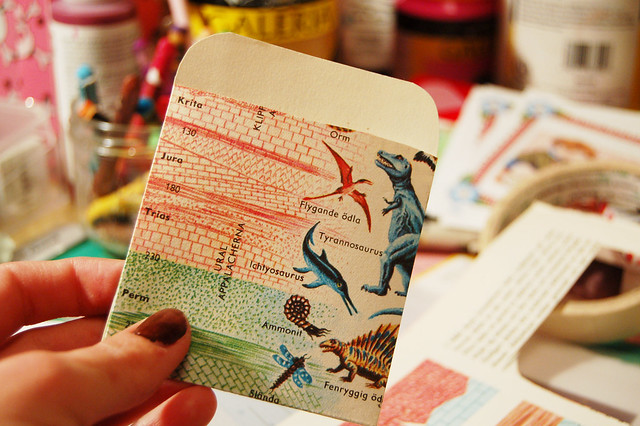 GALERIA
Krita
KLIPP
Orm
130
Jura
180
Flygande ödla
Trias
Tyrannosaurus
URAL
APPALACHERNA
Ichtyosaurus
230
Perm
Ammonit
Slända
Fenryggig öd